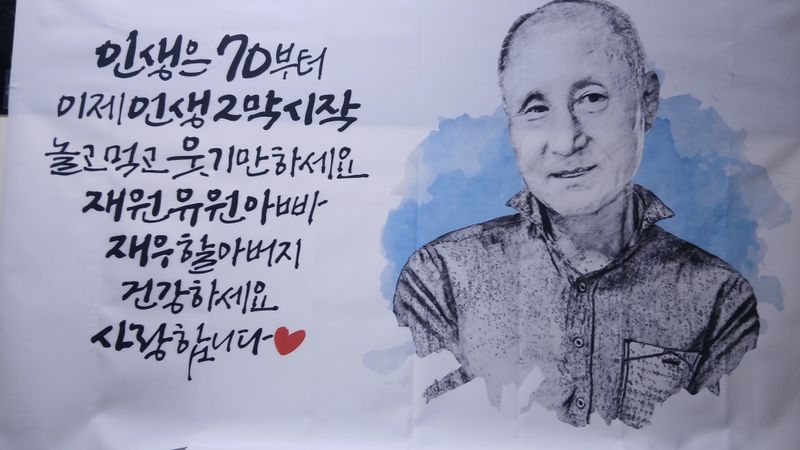 인생은 70부터
이제 인생 2막 시작
놀고 먹고 웃기만 하세요
재원, 유원 아빠
재우 할아버지
건강하세요
사랑합니다